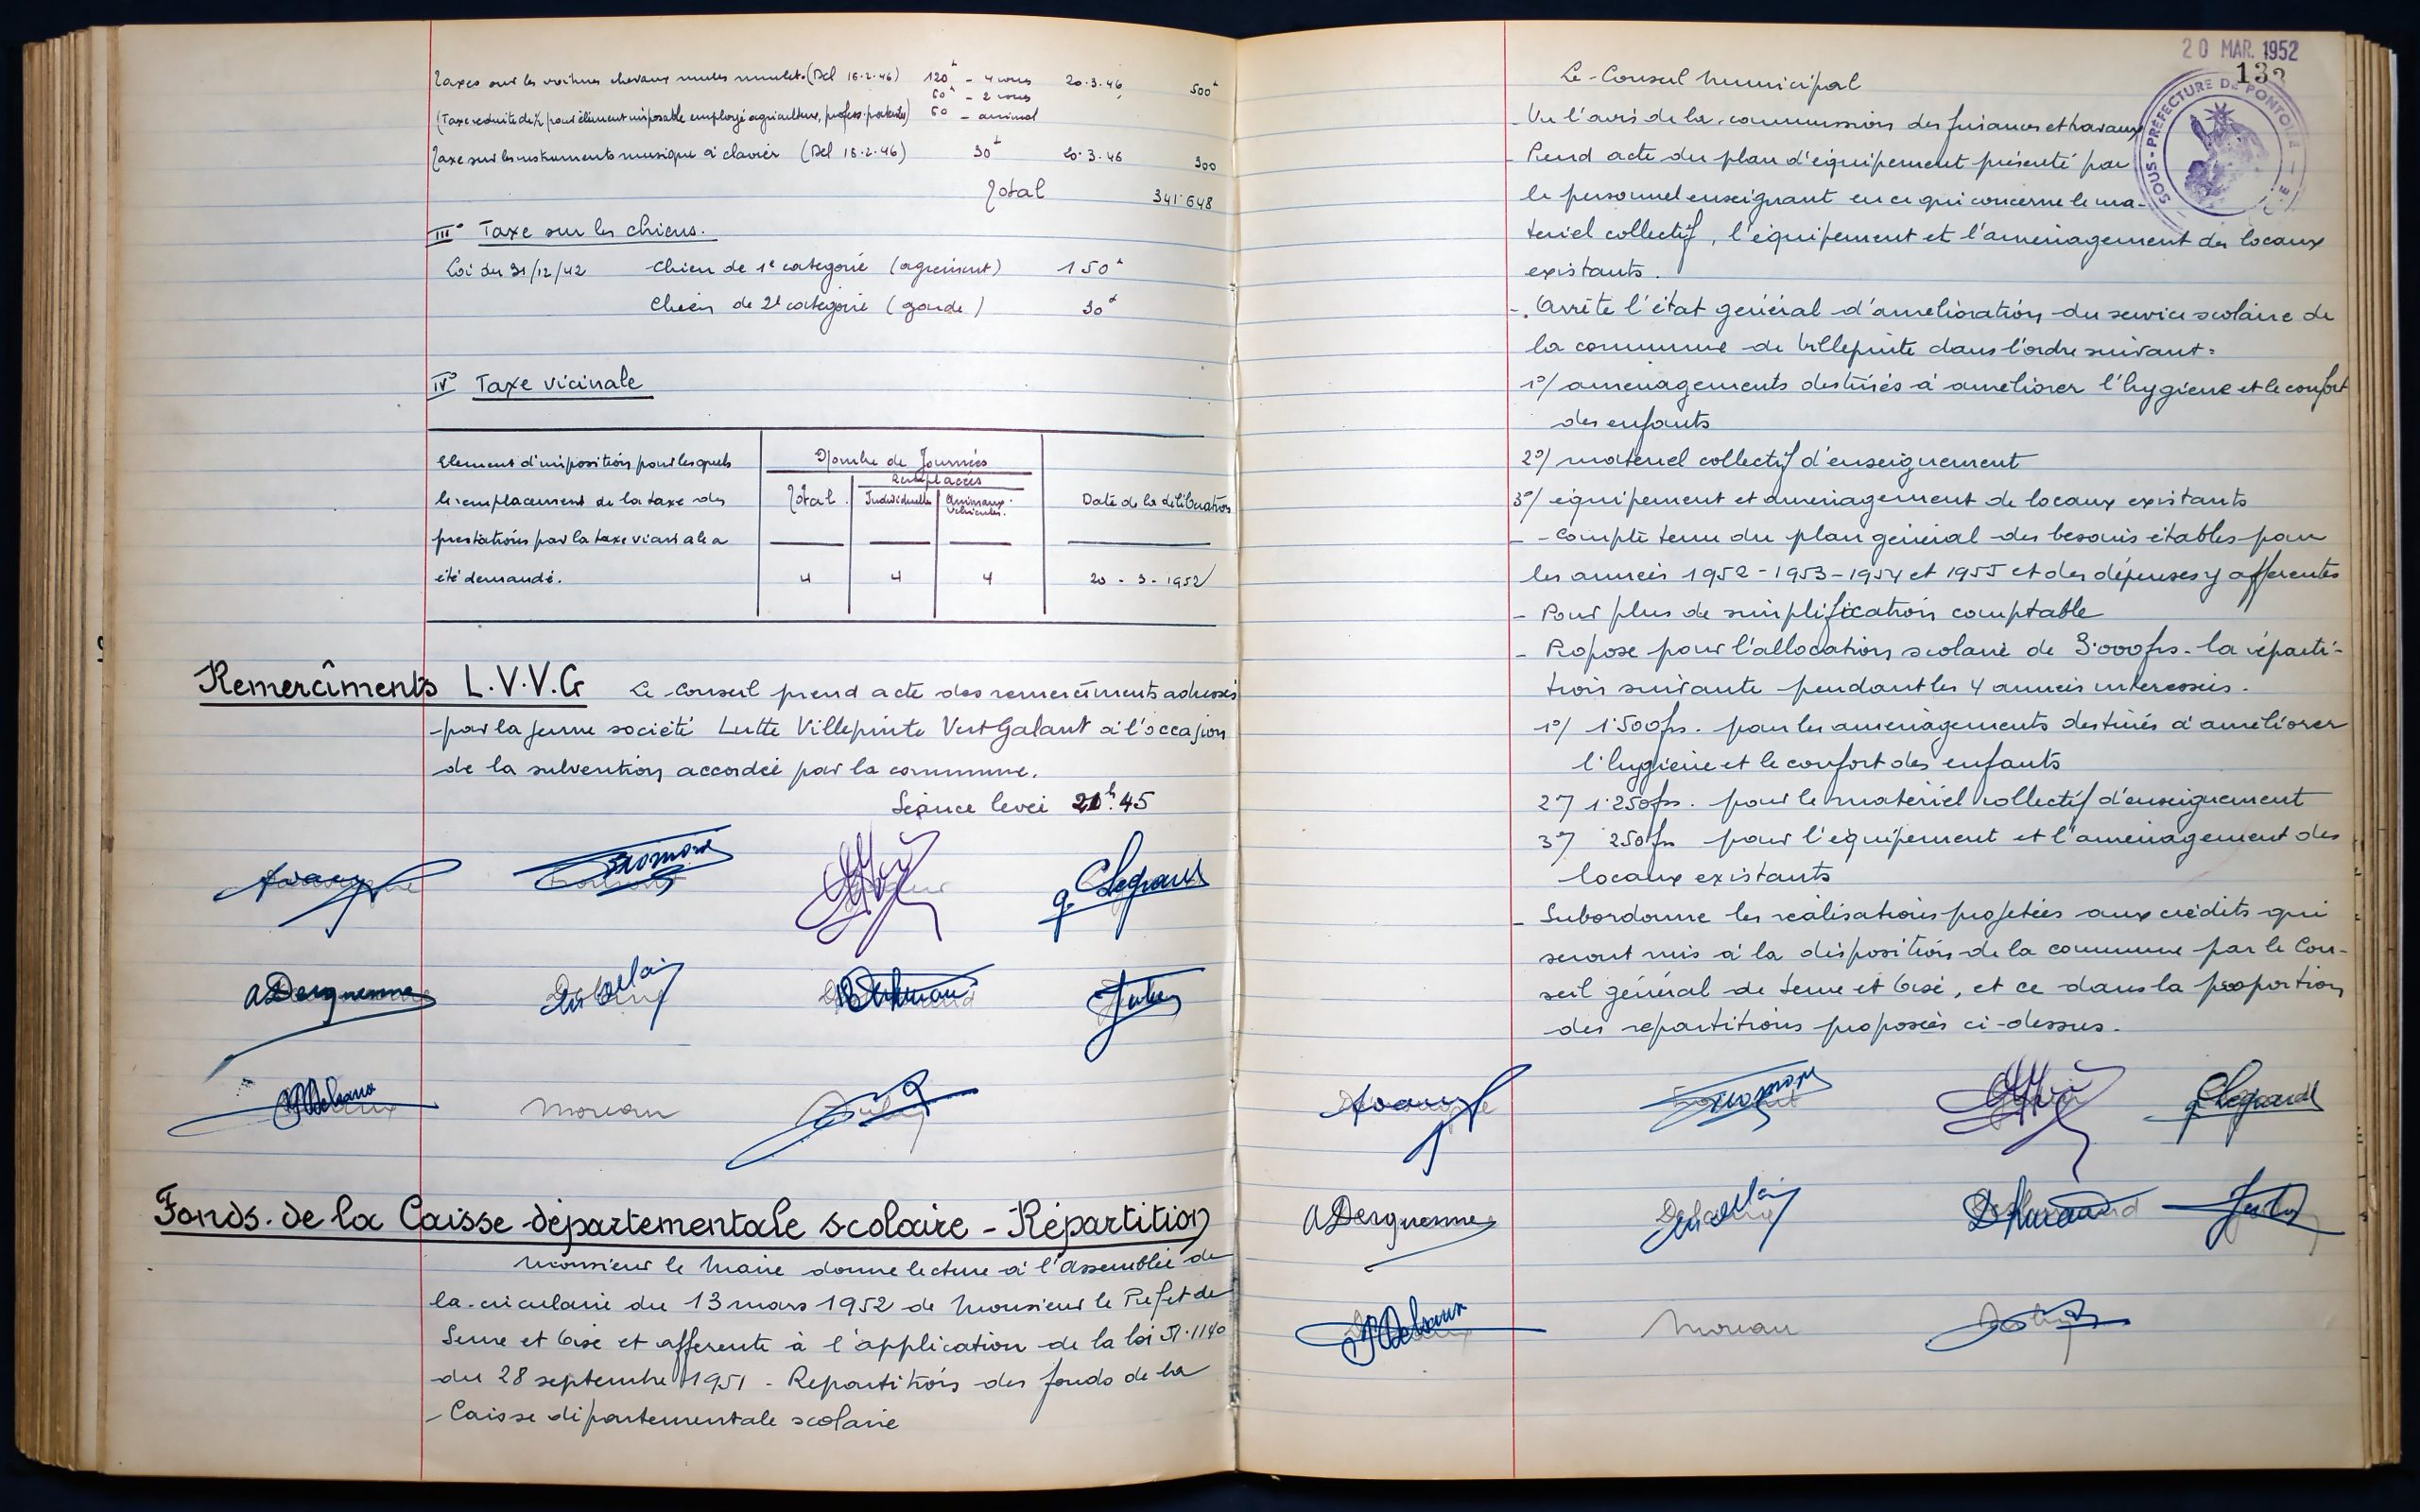 Taxes sur les voitures chevaux mules mulets (Del 16.2.46) 120 - 4 roues 20.3.46 500
60 - 2 roues
(Taxe reduite de ½ pour élément imposable employé agriculture, profess. patentes) 60 - animal
Taxe sur les instruments musique à clavier (Del 16.2.46) 30 20.3.46 300
Total 341.648
III° Taxe sur les chiens.
Loi du 31/12/42 Chien de 1e categorie (agrément) 150
Chien de 2e categorie (garde) 30
IV° Taxe vicinale
Element d'imposition pour lesquels
le remplacement de la taxe des
prestations par la taxe vicinale a
été demandé.
Nombre de Journées
Remplacées
Total Individuelles Animaux. Véhicules. Date de la délibération
4 4 4 20 - 3 - 1952
Remercîments L.V.V.G Le Conseil prend acte des remercîments adressés
par la jeune société Lutte Villepinte Vert Galant à l'occasion
de la subvention accordée par la commune.
Séance levée 21h.45
Legrand
A Derquenne
Moreau
Fonds. de la Caisse départementale scolaire - Répartition
Monsieur le Maire donne lecture à l'Assemblée de
la circulaire du 13 mars 1952 de Monsieur le Préfet de
Seine et Oise et afferente à l'application de la loi N.1140
du 28 septembre 1951 - Repartitions des fonds de la
Caisse départementale scolaire
20 MAR. 1952
133
SOUS-PRÉFECTURE DE PONTOISE
Le Conseil Municipal
- Vu l'avis de la commission des finances et travaux
- Prend acte du plan d'équipement présenté par
le personnel enseignant en ce qui concerne le ma-
teriel collectif, l'équipement et l'aménagement des locaux
existants.
- Arrête l'état général d'amélioration du service scolaire de
la commune de Villepinte dans l'ordre suivant:
1°/ aménagements destinés à améliorer l'hygiène et le confort
des enfants
2°/ matériel collectif d'enseignement
3°/ équipement et aménagement de locaux existants
- Compte tenu du plan général des besoins établis pour
les années 1952-1953-1954 et 1955 et des dépenses y afférentes
- Pour plus de simplification comptable
- Propose pour l'allocation scolaire de 3.000frs. la réparti-
tion suivante pendant les 4 années intéressées.
1°/ 1.500frs. pour les aménagements destinés à améliorer
l'hygiène et le confort des enfants
2°/ 1.250frs. pour le matériel collectif d'enseignement
3°/ 250frs pour l'équipement et l'aménagement des
locaux existants
- Subordonne les réalisations projetées aux crédits qui
seront mis à la disposition de la commune par le Con-
seil général de Seine et Oise, et ce dans la proportion
des repartitions proposées ci-dessus.
Legrand
A Derquenne
Moreau